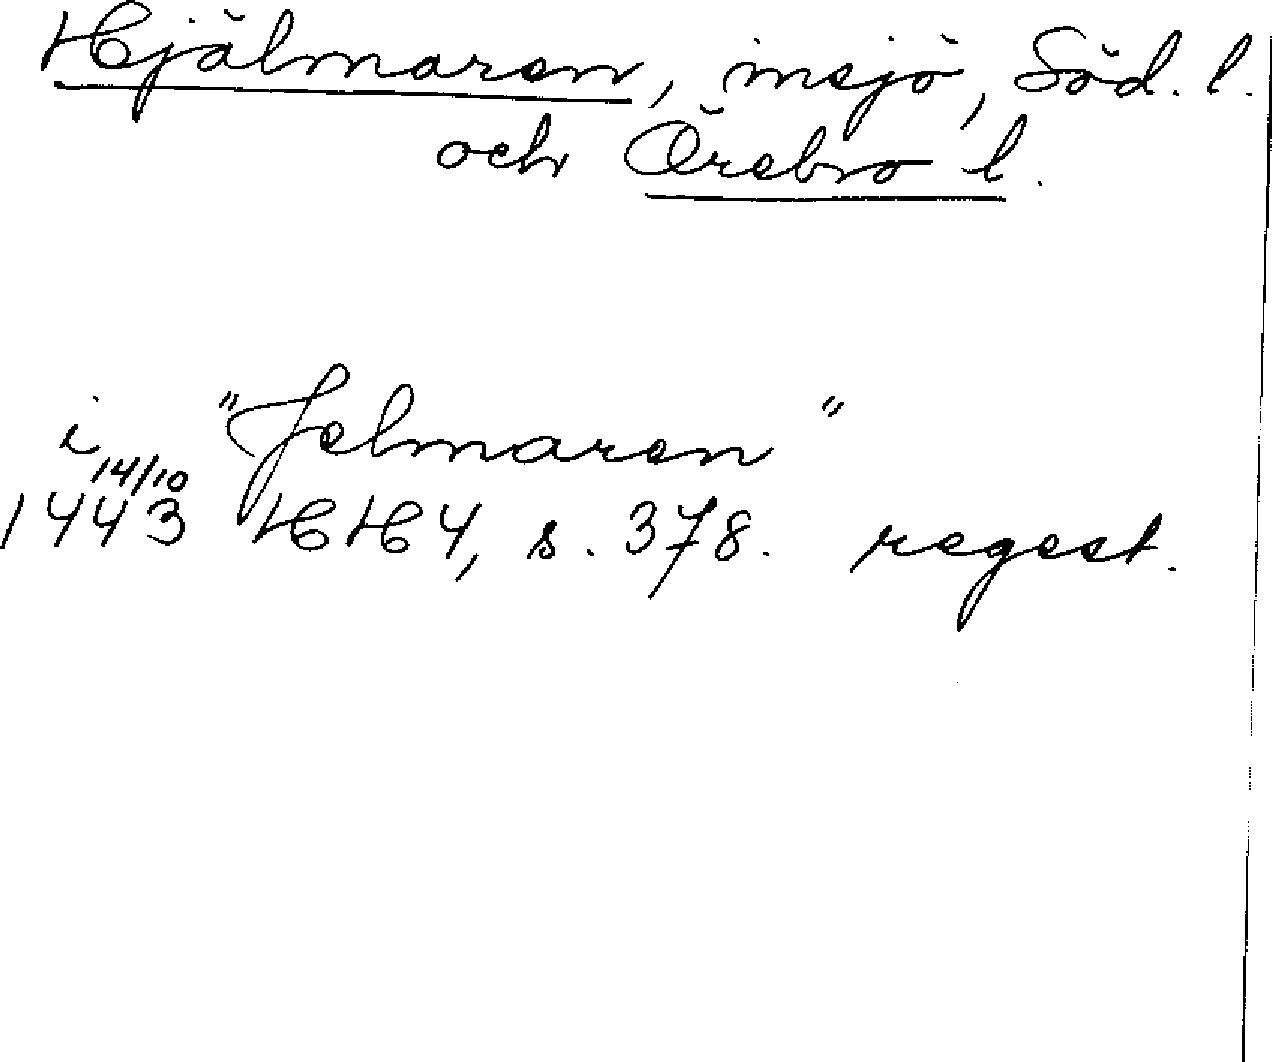 Hjälmaren, insjö, Söd. l.
och Örebro l.
i "Jelmaren"
14/10
1443 HH 4, s. 378. regest.